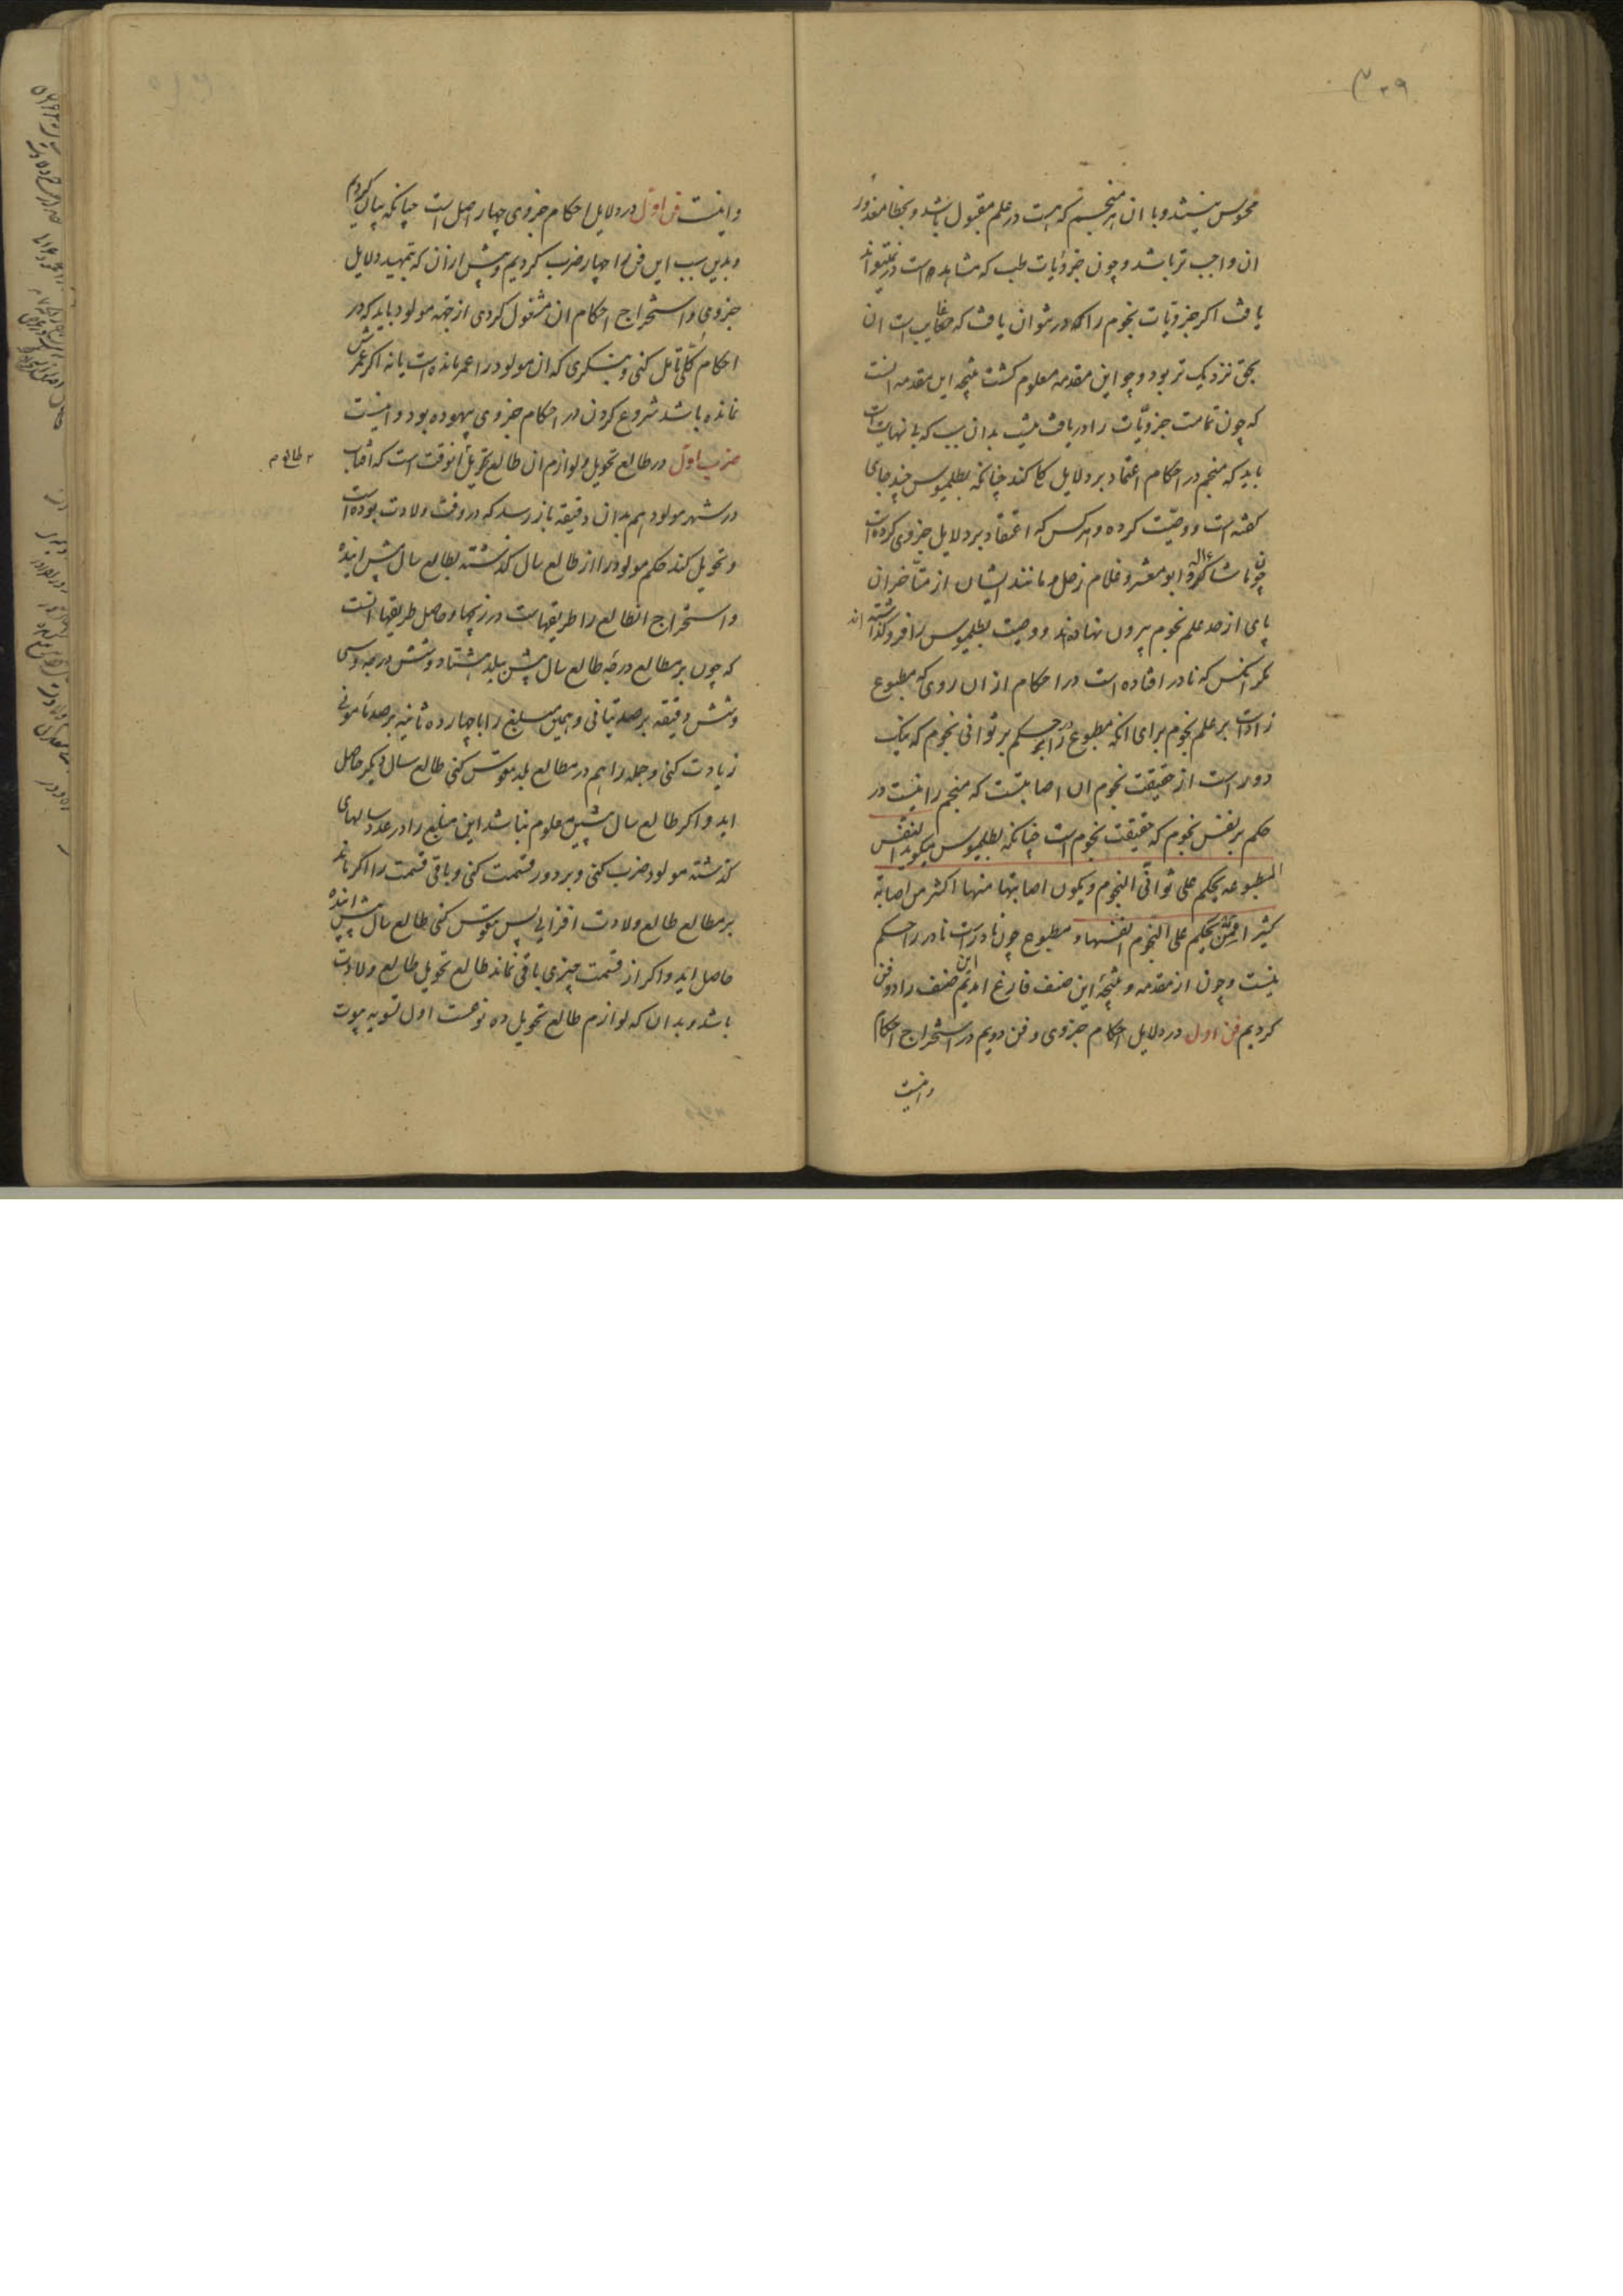 ۲۳۹
محسوس نیستند و با آن هر منجم که هست در علم مقبول باشد و بخطا معذور
ان واجب تر باشد و چون جزویات طب که مشاهده است در نمیتواند
یافت اکر جزویات نجوم را که در نتوان یافت که غایب است ان
بحق نزدیک تر بود و چو این مقدمه معلوم کشت نتیجه این مقدمه انست
که چون تمامت جزویّات را دریافت نیست بدان سبب که بی نهایت است
باید که منجم در احکام اعتماد بر دلایل کلی کند چنانکه بطلمیوس چند جای
کفته است و وصیّت کرده و هر کس که اعتماد بر دلایل جزوی کرده است
چون ماشاءالله و ابومعشر و غلام زحل و مانند ایشان از متأخران
پای از حد علم نجوم بیرون نهاده‌اند و وصیت بطلمیوس را فرو کذاشته اند
مکر انکس که نادر افتاده است در احکام از ان روی که مطبوع
زاده است بر علم نجوم برای انکه مطبوع را در حکم بر ثوانی نجوم که نیک
دور است از حقیقت نجوم ان اصابتست که منجم را نیست در
حکم بر نفس نجوم که حقیقت نجوم است چنانکه بطلمیوس میکوید النفس
المطبوعه یحکم علی ثوانی النجوم و یکون اصابتها منها اکثر من اصابة
کثیرا ممن یحکم علی النجوم انفسها و مطبوع چون نادر است نادر را حکم
نیست و چون از مقدمه و نتیجهٔ این صنف فارغ امدیم این صنف را دو فن
کردیم فن اول در دلایل احکام جزوی و فن دویم در استخراج احکام
و اینست
و اینست فن اوّل در دلایل احکام جزوی چهار اصل است چنانکه بیان کردیم
و بدین سبب این فن را چهار ضرب کردیم و پیش از آن که بتمهید دلایل
جزوی و استخراج احکام ان مشغول کردی از جهة مولود باید که در
احکام کلّی تامل کنی و بنکری که ان مولود را عمر مانده است یا نه اکر عمرش
نمانده باشد شروع کردن در احکام جزوی بیهوده بود و اینست
ضرب اوّل در طالع تحویل و لوازم ان طالع تحویل انوقت است که افتاب
در شهر مولود هم بدان دقیقه باز رسد که در وقت ولادت بوده است
و تحویل کند حکم مولود را از طالع سال کذشته بطالع سال پیش اینده
و استخراج انطالع را طریقهاست در زیجها و حاصل طریقها انست
که چون بر مطالع درجهٔ طالع سال پیش ببلد هشتاد و شش درجه و سی
و شش دقیقه برصد بتانی و همین مبلغ را با چهارده ثانیه برصد مامونی
زیادت کنی و جمله را هم در مطالع بلد مقوس کنی طالع سال دیکر حاصل
اید و اکر طالع سال پیشین معلوم نباشد این مبلغ را در عدد سالهای
کذشته مولود ضرب کنی و بر دور قسمت کنی و باقی قسمت را اکر ماند
بر مطالع طالع ولادت افزایی پس مقوس کنی طالع سال پیش اینده
حاصل اید و اکر از قسمت چیزی باقی نماند طالع تحویل طالع ولادت
باشد و بدان که لوازم طالع تحویل ده نوعست اول تسویه بیوت